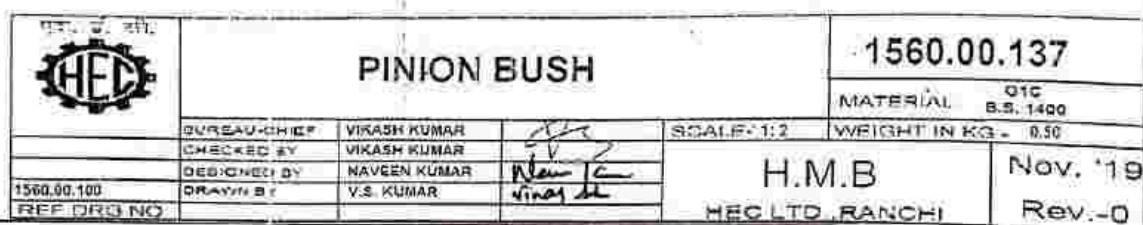 एच. ई. सी.
HEC
PINION BUSH
1560.00.137
MATERIAL
B.S. 1400
BUREAU-CHIEF VIKASH KUMAR SCALE-1:2 WEIGHT IN KG - 0.50
CHECKED BY VIKASH KUMAR
DESIGNED BY NAVEEN KUMAR H.M.B Nov. '19
1560.00.100 DRAWN BY V.S. KUMAR
REF DRG NO HEC LTD., RANCHI Rev.-0